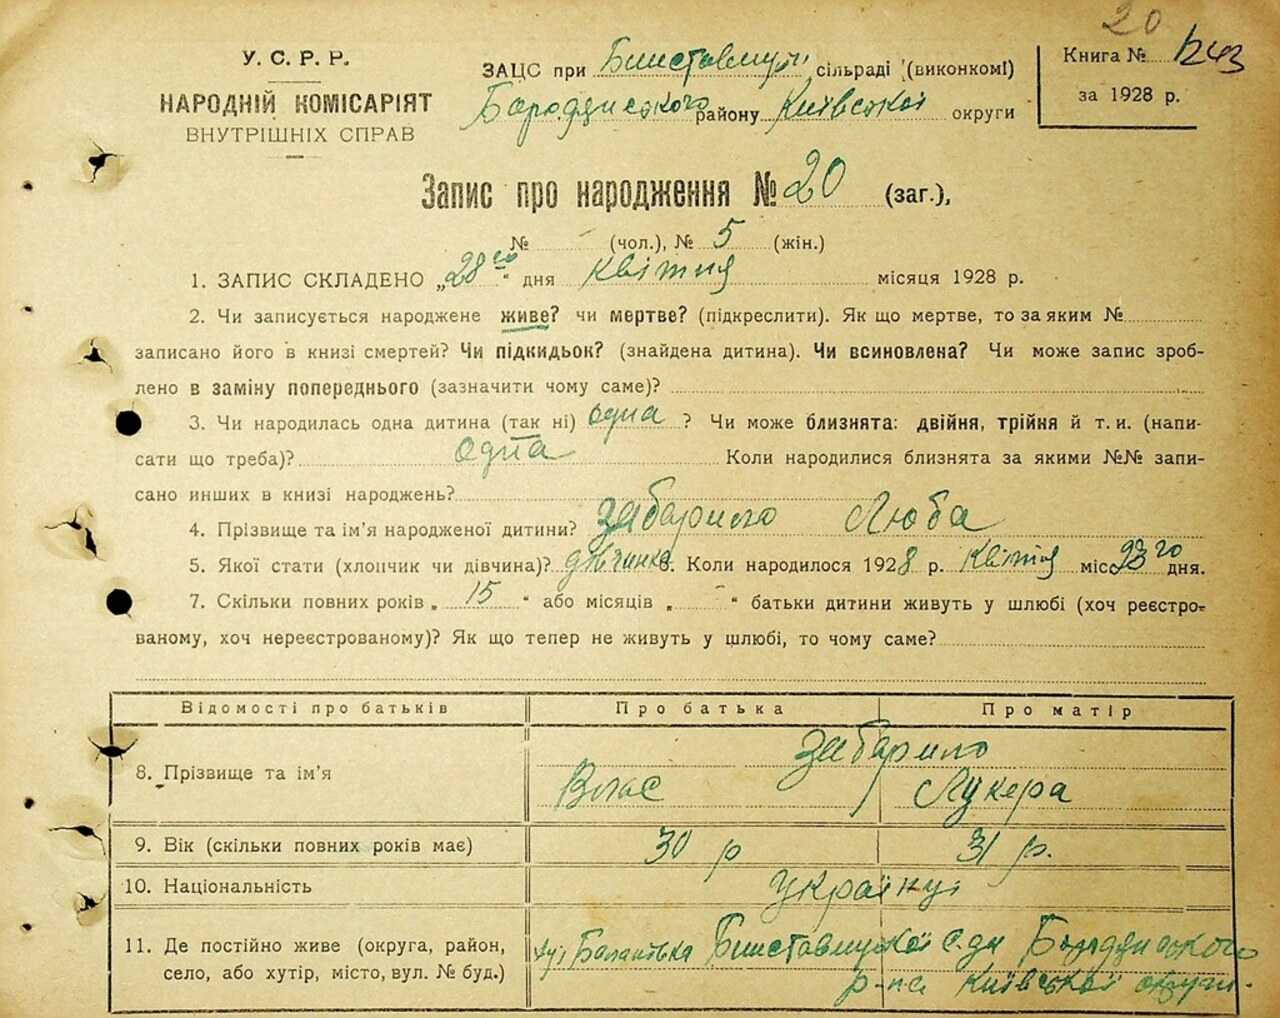 20
У. С. Р. Р.
НАРОДНІЙ КОМІСАРІЯТ
ВНУТРІШНІХ СПРАВ
ЗАЦС при сільраді (виконкомі)
Бородянського району Київської округи
Книга № 1243
за 1928 р.
Запис про народження № 20 (заг.),
№ - (чол.), № 5 (жін.)
1. ЗАПИС СКЛАДЕНО „28го“ дня квітня місяця 1928 р.
2. Чи записується народжене живе? чи мертве? (підкреслити). Як що мертве, то за яким №
записано його в книзі смертей? Чи підкидьок? (знайдена дитина). Чи всиновлена? Чи може запис зроб-
лено в заміну попереднього (зазначити чому саме)?
3. Чи народилась одна дитина (так ні) одна ? Чи може близнята: двійня, трійня й т. и. (напи-
сати що треба)? одна Коли народилися близнята за якими №№ запи-
сано инших в книзі народжень?
4. Прізвище та ім'я народженої дитини? Забарило Люба
5. Якої стати (хлопчик чи дівчина)? дівчинка 6. Коли народилося 1928 р. Квітня міс. 23го дня.
7. Скільки повних років „ 15 “ або місяців „ - “ батьки дитини живуть у шлюбі (хоч реєстро-
ваному, хоч нереєстрованому)? Як що тепер не живуть у шлюбі, то чому саме?
Відомості про батьків Про батька Про матір
8. Прізвище та ім'я Забарило
Влас Лукера
9. Вік (скільки повних років має) 30 р 31 р.
10. Національність Українці
11. Де постійно живе (округа, район, Бородянського
село, або хутір, місто, вул. № буд.) р-на Київської округи.